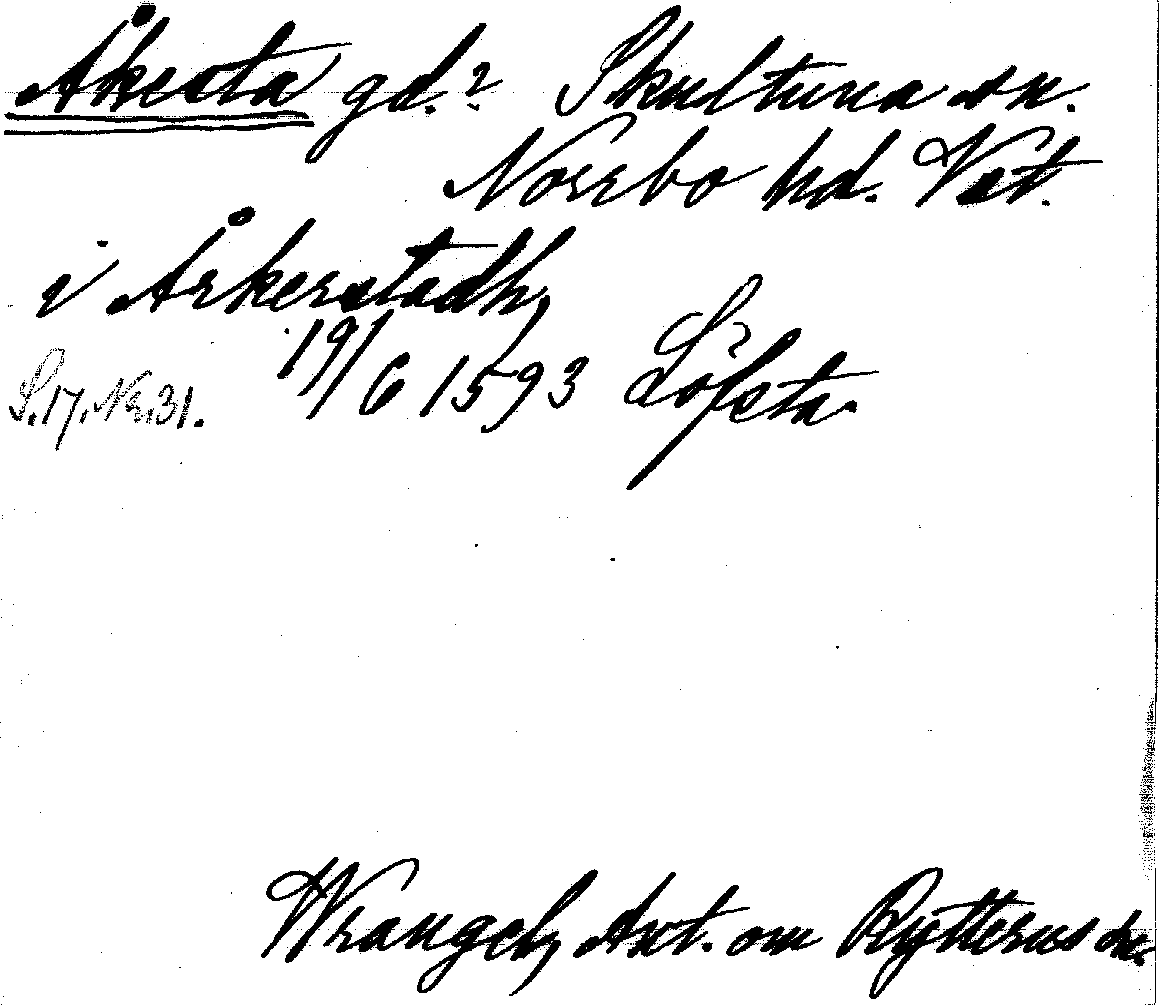 Åkesta gd.? Skultuna sn.
Norrbo hd. Vst.
i Årkerstadh,
19/6 1593 Löfsta.
S. 17, Nr. 31.
Wrangel, Ant. om Rytterns sn.